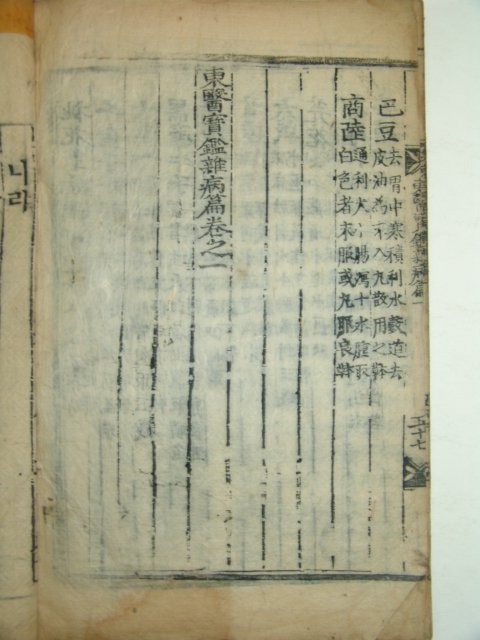 巴豆 去胃中寒積利水穀道去
皮油為末入丸散用之本草
商陸 通利大小腸瀉十水腫取
白色者末服或丸服良本草
東醫寶鑑雜病篇卷之一
東醫寶鑑雜病篇一
나라